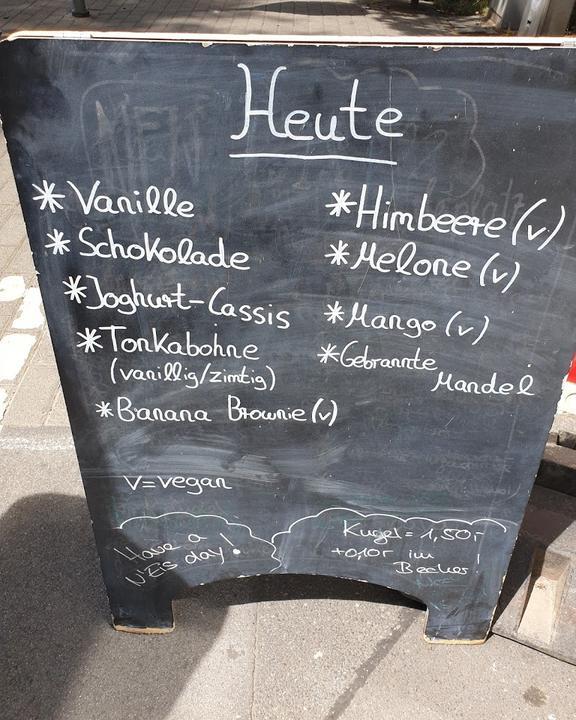 Heute
* Vanille
* Schokolade
* Joghurt-Cassis
* Tonkabohne
(vanillig/zimtig)
* Banana Brownie (v)
* Himbeere (v)
* Melone (v)
* Mango (v)
* Gebrannte
Mandel
v=vegan
Have a
N'Eis day!
Kugel = 1,50,-
+0,10,- im
Becher!